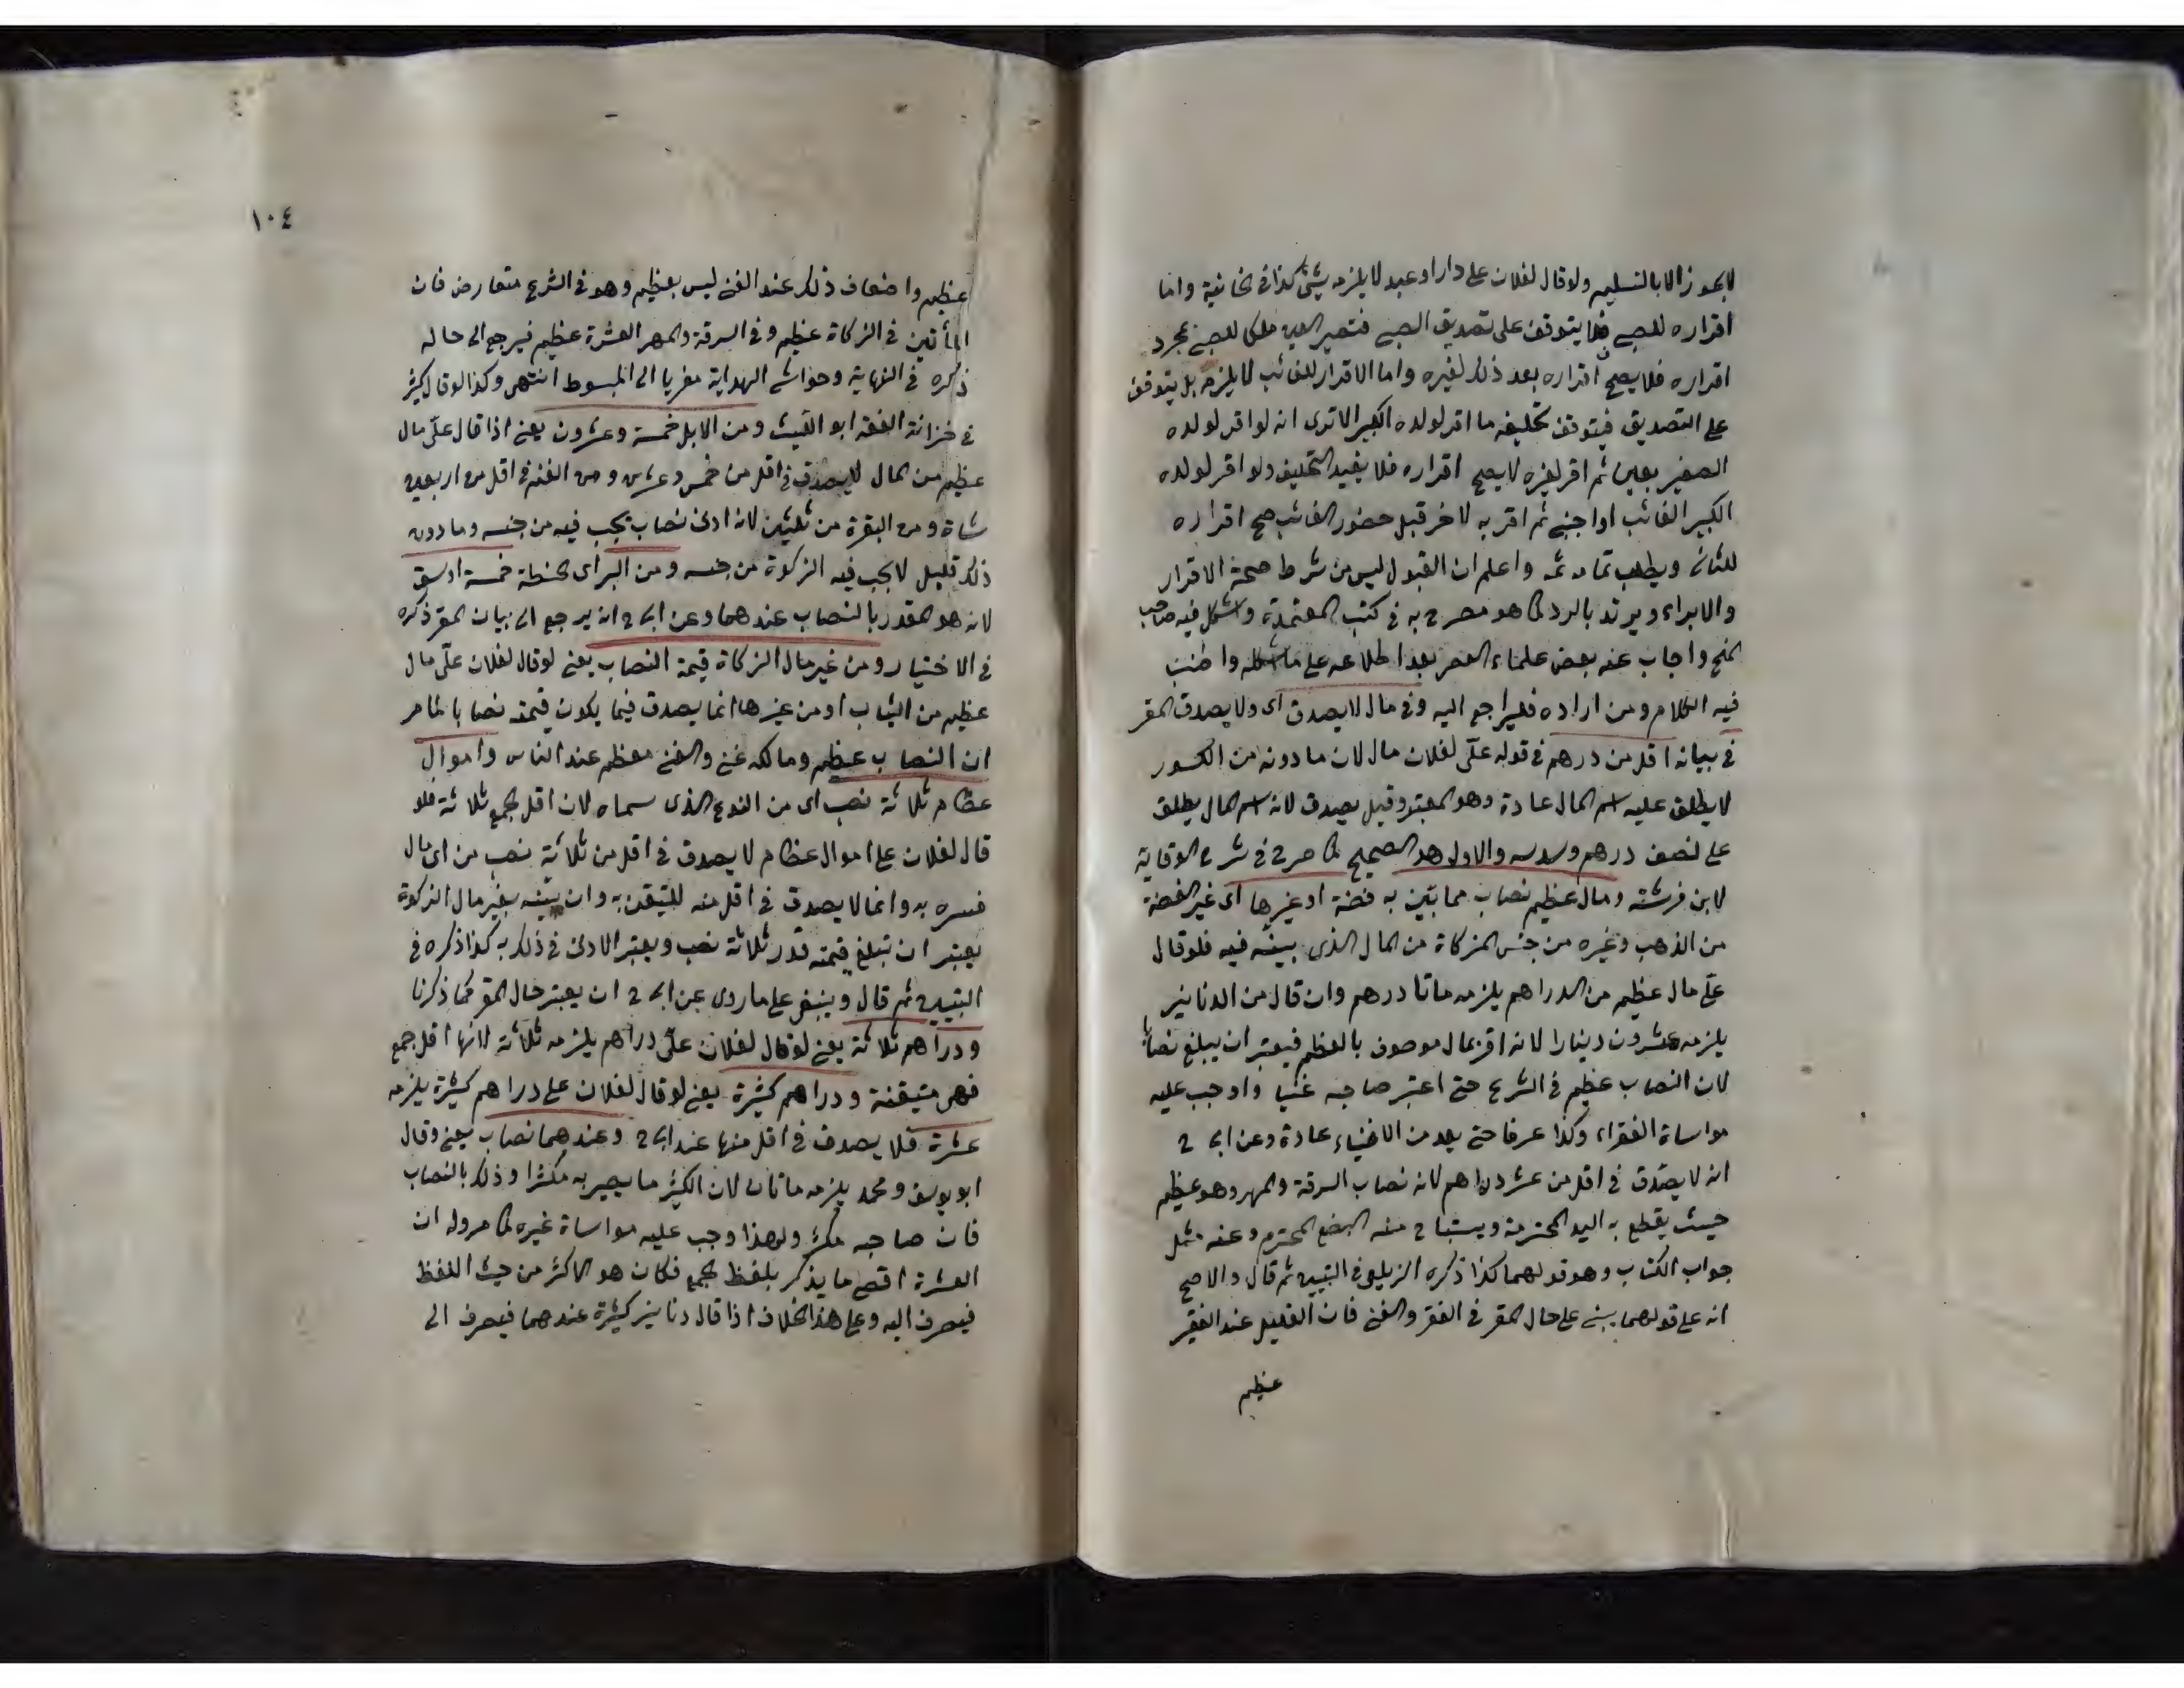 لا يجوز الا بالتسليم ولو قال لفلان علي دار او عبد لا يلزمه شيئ كذا في الخانية واما
اقراره للصبي فلا يتوقف على تصديق الصبي فتصير العين ملكا للصبي بمجرد
اقراره فلا يصح اقراره بعد ذلك لغيره واما الاقرار للغائب لا يلزمه بل يتوقف
على التصديق فيتوقف تحليفه ما اقر لولده الكبير الا ترى انه لو اقر لولده
الصغير بعين ثم اقر لغيره لا يصح اقراره فلا يفيد التحليف ولو اقر لولده
الكبير الغائب او اجنبي ثم اقر به لاخر قبل حضور الغائب صح اقراره
للثاني ويطلب تمامه ثمه واعلم ان القبول ليس من شرط صحة الاقرار
والابراء ويرتد بالرد كما هو مصرح به في كتب المعتمدة واشكل فيه صاحب
المنح واجاب عنه بعض علماء العصر بعد اطلاعه على ما اشكله واطنب
فيه الكلام ومن اراده فليراجع اليه وفي مال لا يصدق اى ولا يصدق المقر
في بيانه اقل من درهم في قوله علّي لفلان مال لان ما دونه من الكسور
لا يطلق عليه اسم المال عادة وهو المعتبر وقيل يصدق لانه اسم المال يطلق
على نصف درهم وسدسه والاول هو الصحيح كما صرح في شرح الوقاية
لابن فرشته ومال عظيم نصاب مما بيّن به فضة او غيرها اى غير الفضة
من الذهب وغيره من جنس الزكاة من المال الذى بينه فيه فلو قال
علّي مال عظيم من الدراهم يلزمه مائتا درهم وان قال من الدنانير
يلزمه عشرون دينارا لانه اقر بمال موصوف بالعظم فيعتبر ان يبلغ نصابا
لان النصاب عظيم في الشرع حتى اعتبر صاحبه غنيا واوجب عليه
مواساة الفقراء وكذا عرفا حتى يعد من الاغنياء عادة وعن ابى ح
انه لا يصدّق في اقل من عشر دراهم لانه نصاب السرقة والمهر وهو عظيم
حيث يقطع به اليد المحترمة ويستباح منه البضع المحترم وعنه مثل
جواب الكتاب وهو قولهما كذا ذكره الزيلعي في التبيين ثم قال والاصح
انه على قولهما يبنى على حال المقر في الفقر والغنى فان القليل عند الفقير
عظيم
١٠٤
عظيم واضعاف ذلك عند الغني ليس بعظيم وهو في الشرع متعارض فان
المأتين في الزكاة عظيم وفي السرقة والمهر العشرة عظيم فيرجع الى حاله
ذكره في النهاية وحواشي الهداية معزيا الى المبسوط انتهى وكذا لو قال كثير
في خزانة الفقه ابو الليث ومن الابل خمسة وعشرون يعني اذا قال علّي مال
عظيم من المال لا يصدق في اقل من خمس وعشرين ومن الغنم في اقل من اربعين
شاة ومن البقرة من ثلثين لانه ادنى نصاب يجب فيه من جنسه وما دون
ذلك قليل لا يجب فيه الزكوة من جنسه ومن البر اى الحنطة خمسة اوسق
لانه هو المقدر بالنصاب عندهما وعن ابى ح انه يرجع الى بيان المقر ذكره
في الاختيار ومن غير مال الزكاة قيمة النصاب يعني لو قال لفلان علّي مال
عظيم من الثياب او من غيرها انما يصدق فيما يكون قيمته نصابا لما مر
ان النصاب عظيم ومالكه غني والغني معظم عند الناس واموال
عظام ثلاثة نصب اى من النوع الذى سماه لان اقل الجمع ثلاثة فلو
قال لفلان علي اموال عظام لا يصدق في اقل من ثلاثة نصب من اى مال
فسره به وانما لا يصدق في اقل منه للتيقن به وان بيّنه بغير مال الزكوة
يعتبر ان تبلغ قيمته قدر ثلاثة نصب ويعتبر الادنى في ذلك به كذا ذكره في
التبيين ثم قال وينبغي على ما روى عن ابى ح ان يعتبر حال المقر كما ذكرنا
ودراهم ثلاثة يعني لو قال لفلان علّي دراهم يلزمه ثلاثة لانها اقل جمع
فهى متيقنة ودراهم كثيرة يعني لو قال لفلان علي دراهم كثيرة يلزمه
عشرة فلا يصدق في اقل منها عند ابى ح وعندهما نصاب يعني وقال
ابو يوسف ومحمد يلزمه مائتان لان الكثير ما يصير به مكثرا وذلك بالنصاب
فان صاحبه مكثر ولهذا وجب عليه مواساة غيره كما مر وله ان
العشرة اقصى ما يذكر بلفظ الجمع فكان هو الاكثر من حيث اللفظ
فيصرف اليه وعلى هذا الخلاف اذا قال دنانير كثيرة عندهما فيصرف الى